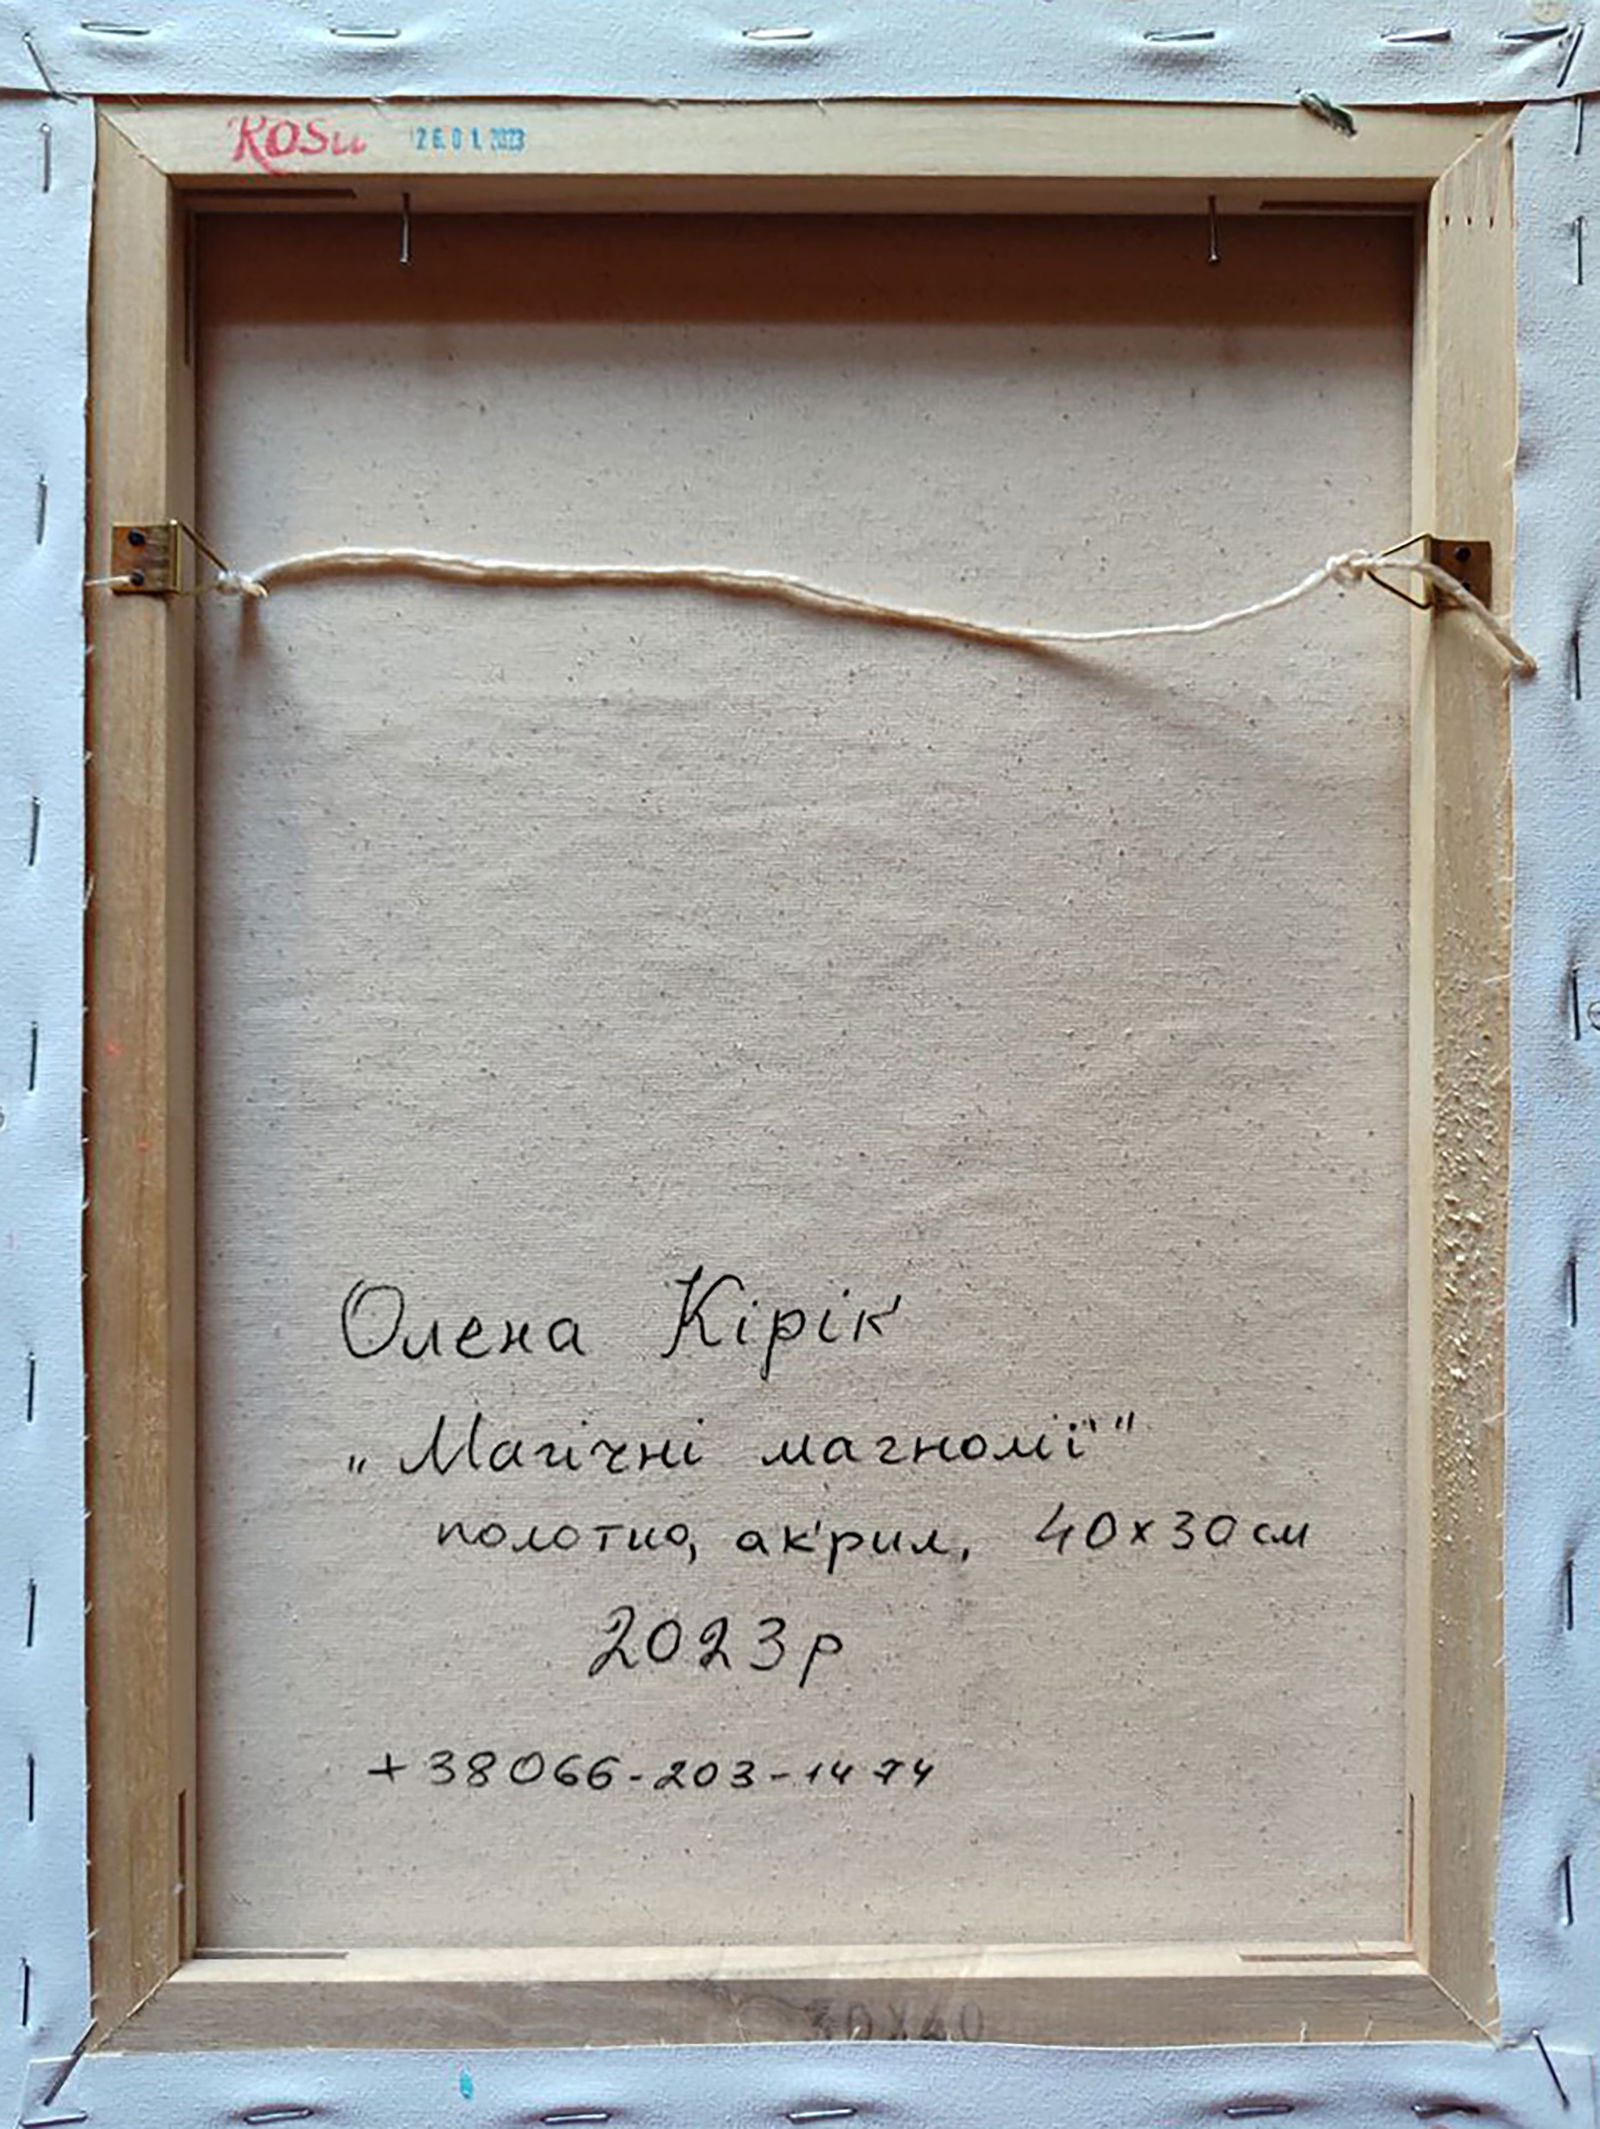 ROSA 26.01.2023
Олена Кірік
„Магічні магнолії"
полотно, акрил, 40х30см
2023р
+38066-203-14 74
30X40